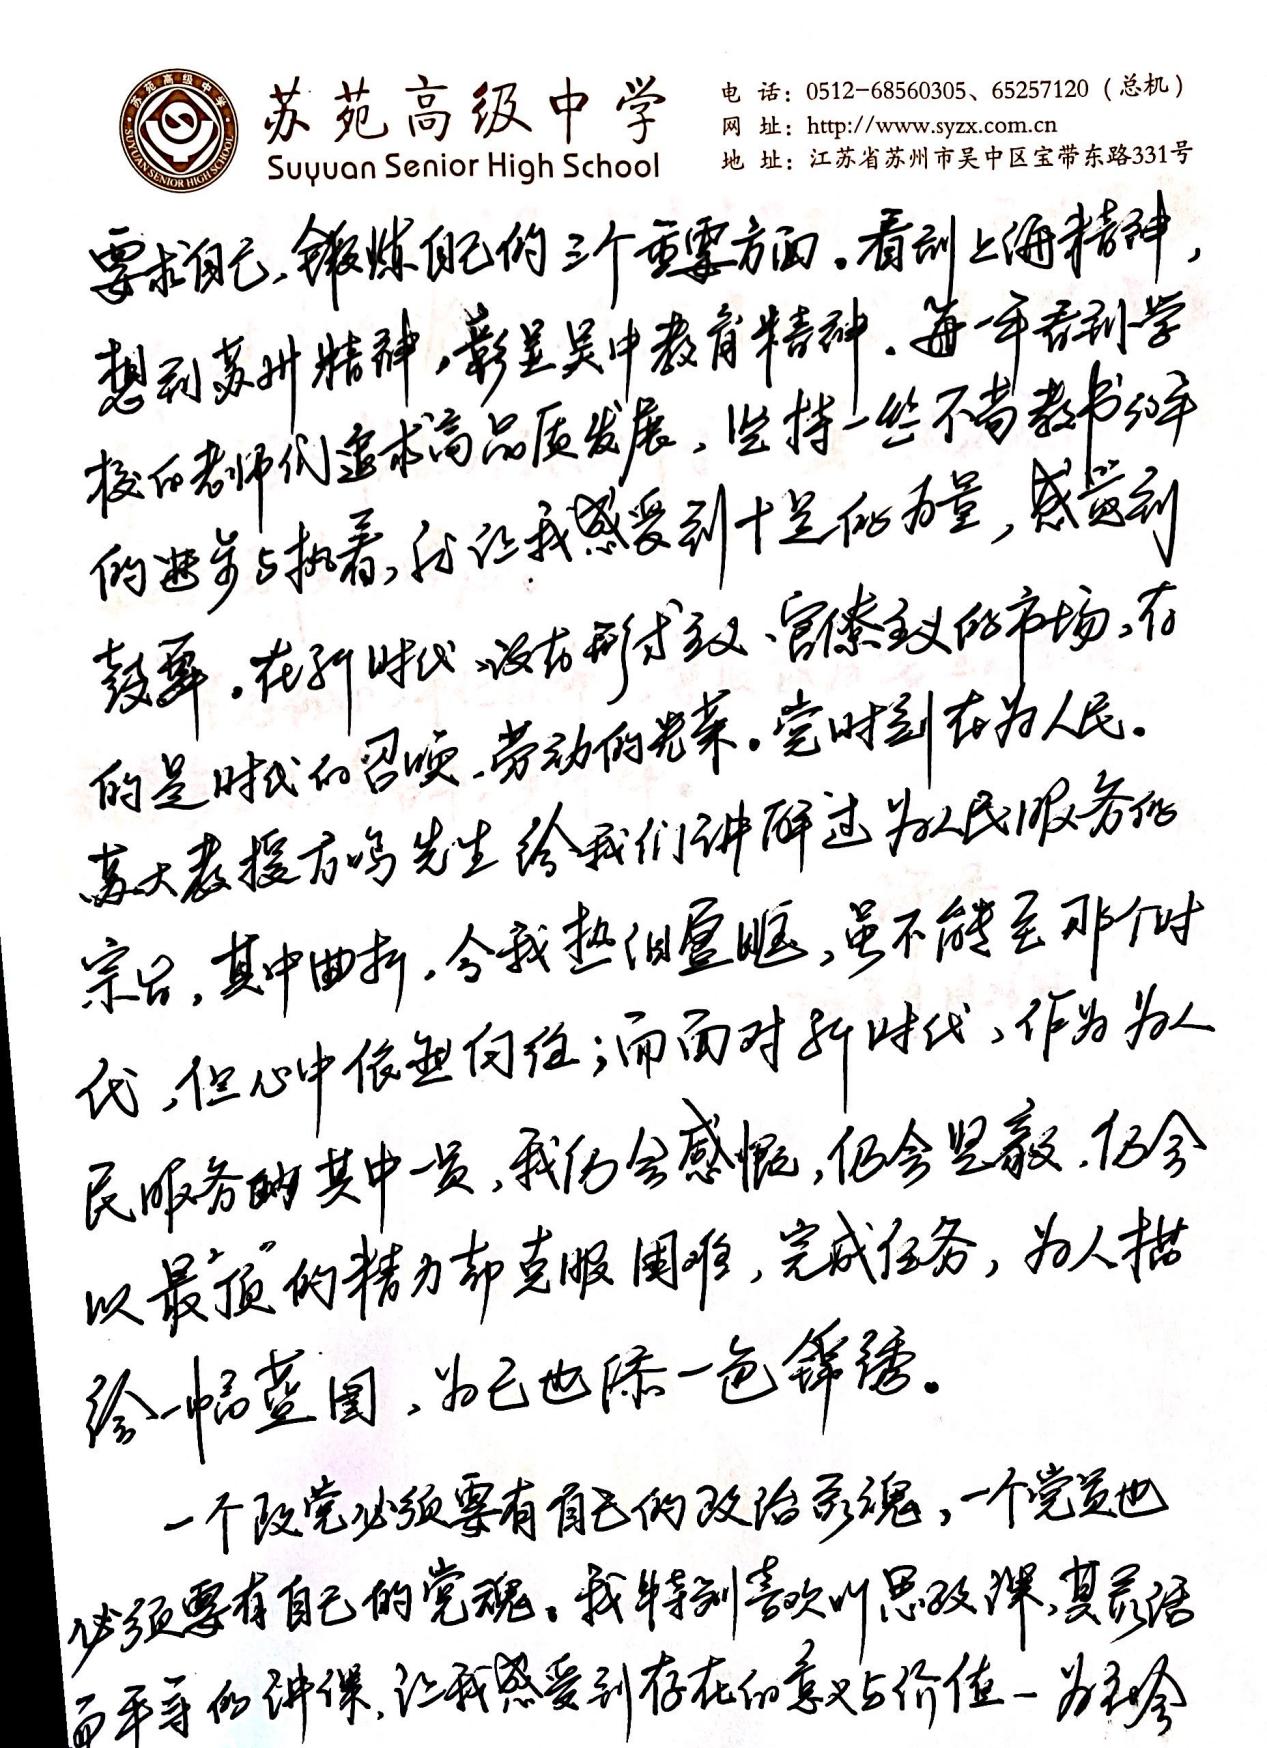 苏苑高级中学
Suyuan Senior High School
电 话：0512-68560305、65257120（总机）
网 址：http://www.syzx.com.cn
地 址：江苏省苏州市吴中区宝带东路331号
苏苑高级中学
SUYUAN SENIOR HIGH SCHOOL
要求自己、锻炼自己的三个重要方面。看到上海精神，
想到苏州精神，彰显吴中教育精神。每一年看到学
校的老师们追求高品质发展，坚持一些不带教书的年
的进步与执着，都让我感受到十足的力量，感觉到
鼓舞。在新时代，没有形式主义、官僚主义的市场，有
的是时代的召唤、劳动的光荣。党时刻在为人民。
苏大教授方鸣先生给我们讲解过为人民服务的
宗旨，其中曲折，令我热泪盈眶，虽不能至那个时
代，但心中依然向往；而面对新时代，作为为人
民服务的其中一员，我仍会感慨，仍会坚毅，仍会
以最“顶”的精力却克服困难，完成任务，为人描
绘一幅蓝图，为己也添一色锦绣。
一个政党必须要有自己的政治灵魂，一个党员也
必须要有自己的党魂。我特别喜欢叫思政课，其灵活
而平等的讲课，让我感受到存在的意义与价值－为社会